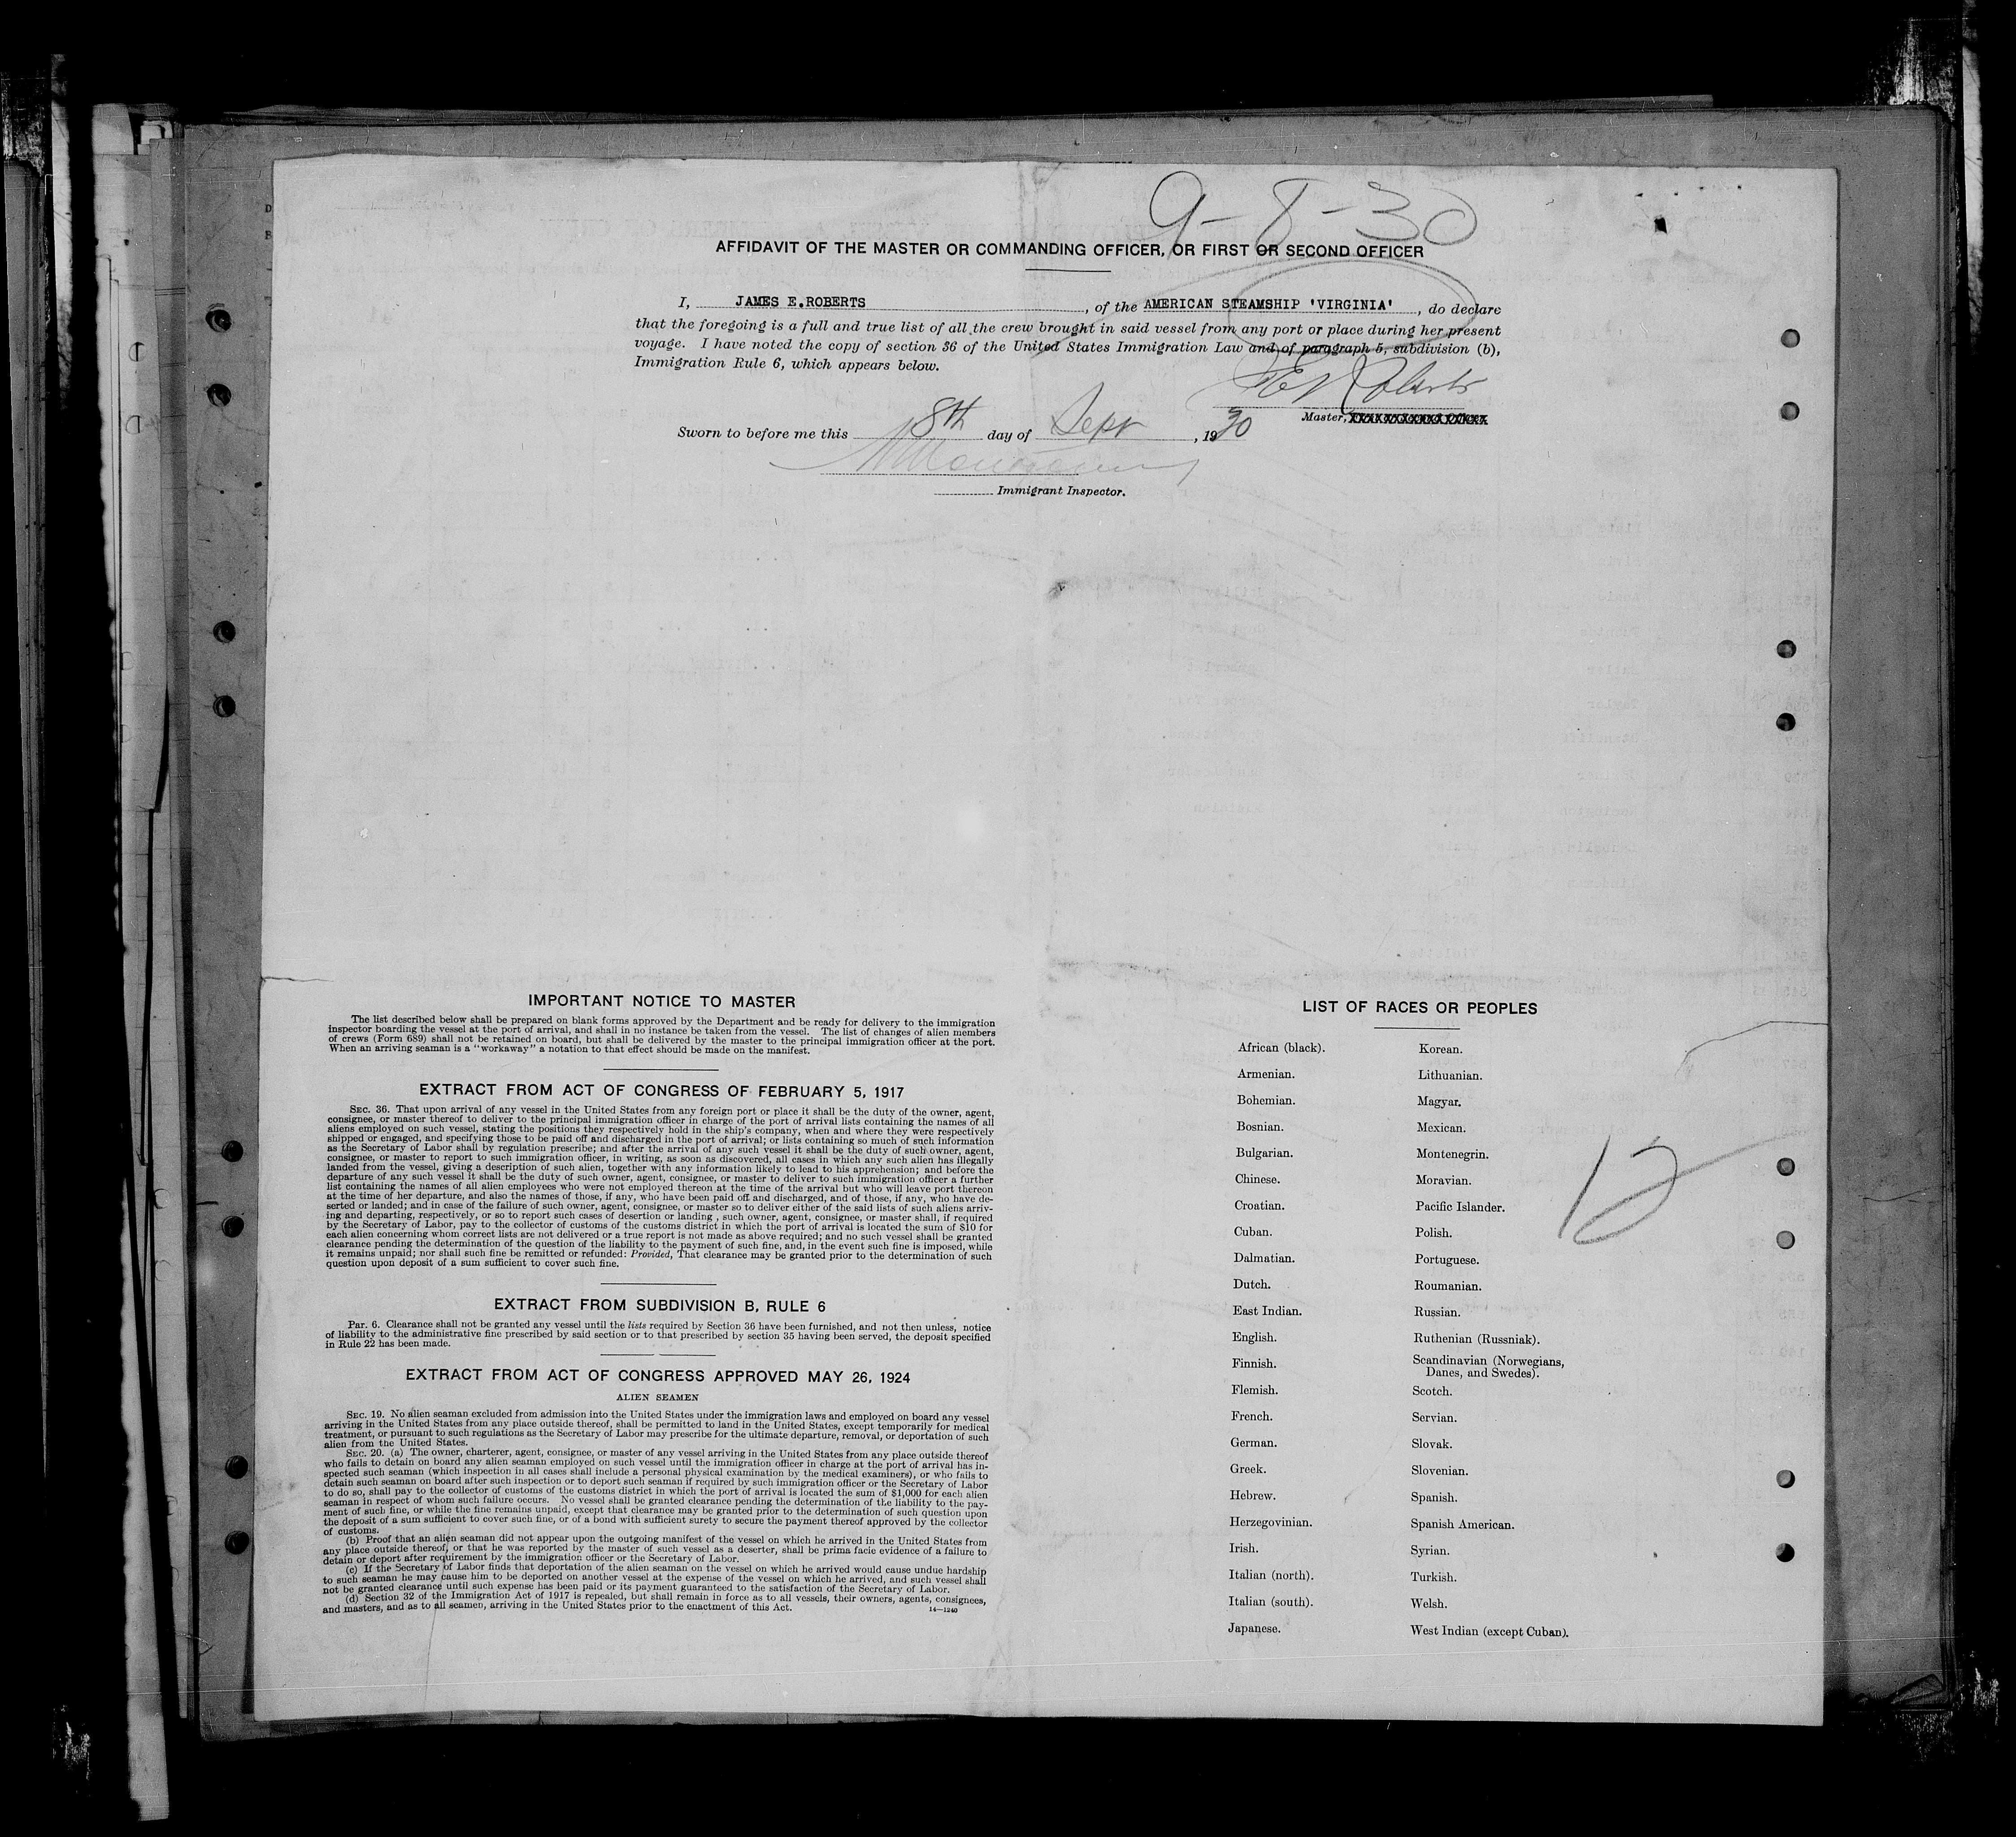 9-8-30
AFFIDAVIT OF THE MASTER OR COMMANDING OFFICER, OR FIRST OR SECOND OFFICER
I, JAMES E. ROBERTS, of the AMERICAN STEAMSHIP 'VIRGINIA', do declare
that the foregoing is a full and true list of all the crew brought in said vessel from any port or place during her present
voyage. I have noted the copy of section 36 of the United States Immigration Law and of paragraph 5, subdivision (b),
Immigration Rule 6, which appears below.
Roberts
Master,
Sworn to before me this 8th day of Sept, 1930
Immigrant Inspector.
IMPORTANT NOTICE TO MASTER
The list described below shall be prepared on blank forms approved by the Department and be ready for delivery to the immigration
inspector boarding the vessel at the port of arrival, and shall in no instance be taken from the vessel. The list of changes of alien members
of crews (Form 689) shall not be retained on board, but shall be delivered by the master to the principal immigration officer at the port.
When an arriving seaman is a "workaway" a notation to that effect should be made on the manifest.
EXTRACT FROM ACT OF CONGRESS OF FEBRUARY 5, 1917
SEC. 36. That upon arrival of any vessel in the United States from any foreign port or place it shall be the duty of the owner, agent,
consignee, or master thereof to deliver to the principal immigration officer in charge of the port of arrival lists containing the names of all
aliens employed on such vessel, stating the positions they respectively hold in the ship's company, when and where they were respectively
shipped or engaged, and specifying those to be paid off and discharged in the port of arrival; or lists containing so much of such information
as the Secretary of Labor shall by regulation prescribe; and after the arrival of any such vessel it shall be the duty of such owner, agent,
consignee, or master to report to such immigration officer, in writing, as soon as discovered, all cases in which any such alien has illegally
landed from the vessel, giving a description of such alien, together with any information likely to lead to his apprehension; and before the
departure of any such vessel it shall be the duty of such owner, agent, consignee, or master to deliver to such immigration officer a further
list containing the names of all alien employees who were not employed thereon at the time of the arrival but who will leave port thereon
at the time of her departure, and also the names of those, if any, who have been paid off and discharged, and of those, if any, who have de-
serted or landed; and in case of the failure of such owner, agent, consignee, or master so to deliver either of the said lists of such aliens arriv-
ing and departing, respectively, or so to report such cases of desertion or landing , such owner, agent, consignee, or master shall, if required
by the Secretary of Labor, pay to the collector of customs of the customs district in which the port of arrival is located the sum of $10 for
each alien concerning whom correct lists are not delivered or a true report is not made as above required; and no such vessel shall be granted
clearance pending the determination of the question of the liability to the payment of such fine, and, in the event such fine is imposed, while
it remains unpaid; nor shall such fine be remitted or refunded: Provided, That clearance may be granted prior to the determination of such
question upon deposit of a sum sufficient to cover such fine.
EXTRACT FROM SUBDIVISION B, RULE 6
Par. 6. Clearance shall not be granted any vessel until the lists required by Section 36 have been furnished, and not then unless, notice
of liability to the administrative fine prescribed by said section or to that prescribed by section 35 having been served, the deposit specified
in Rule 22 has been made.
EXTRACT FROM ACT OF CONGRESS APPROVED MAY 26, 1924
ALIEN SEAMEN
SEC. 19. No alien seaman excluded from admission into the United States under the immigration laws and employed on board any vessel
arriving in the United States from any place outside thereof, shall be permitted to land in the United States, except temporarily for medical
treatment, or pursuant to such regulations as the Secretary of Labor may prescribe for the ultimate departure, removal, or deportation of such
alien from the United States.
SEC. 20. (a) The owner, charterer, agent, consignee, or master of any vessel arriving in the United States from any place outside thereof
who fails to detain on board any alien seaman employed on such vessel until the immigration officer in charge at the port of arrival has in-
spected such seaman (which inspection in all cases shall include a personal physical examination by the medical examiners), or who fails to
detain such seaman on board after such inspection or to deport such seaman if required by such immigration officer or the Secretary of Labor
to do so, shall pay to the collector of customs of the customs district in which the port of arrival is located the sum of $1,000 for each alien
seaman in respect of whom such failure occurs. No vessel shall be granted clearance pending the determination of the liability to the pay-
ment of such fine, or while the fine remains unpaid, except that clearance may be granted prior to the determination of such question upon
the deposit of a sum sufficient to cover such fine, or of a bond with sufficient surety to secure the payment thereof approved by the collector
of customs.
(b) Proof that an alien seaman did not appear upon the outgoing manifest of the vessel on which he arrived in the United States from
any place outside thereof, or that he was reported by the master of such vessel as a deserter, shall be prima facie evidence of a failure to
detain or deport after requirement by the immigration officer or the Secretary of Labor.
(c) If the Secretary of Labor finds that deportation of the alien seaman on the vessel on which he arrived would cause undue hardship
to such seaman he may cause him to be deported on another vessel at the expense of the vessel on which he arrived, and such vessel shall
not be granted clearance until such expense has been paid or its payment guaranteed to the satisfaction of the Secretary of Labor.
(d) Section 32 of the Immigration Act of 1917 is repealed, but shall remain in force as to all vessels, their owners, agents, consignees,
and masters, and as to all seamen, arriving in the United States prior to the enactment of this Act.
14—1240
LIST OF RACES OR PEOPLES
African (black). Korean.
Armenian. Lithuanian.
Bohemian. Magyar.
Bosnian. Mexican.
Bulgarian. Montenegrin.
Chinese. Moravian.
Croatian. Pacific Islander.
Cuban. Polish.
Dalmatian. Portuguese.
Dutch. Roumanian.
East Indian. Russian.
English. Ruthenian (Russniak).
Finnish. Scandinavian (Norwegians,
Danes, and Swedes).
Flemish. Scotch.
French. Servian.
German. Slovak.
Greek. Slovenian.
Hebrew. Spanish.
Herzegovinian. Spanish American.
Irish. Syrian.
Italian (north). Turkish.
Italian (south). Welsh.
Japanese. West Indian (except Cuban).
12